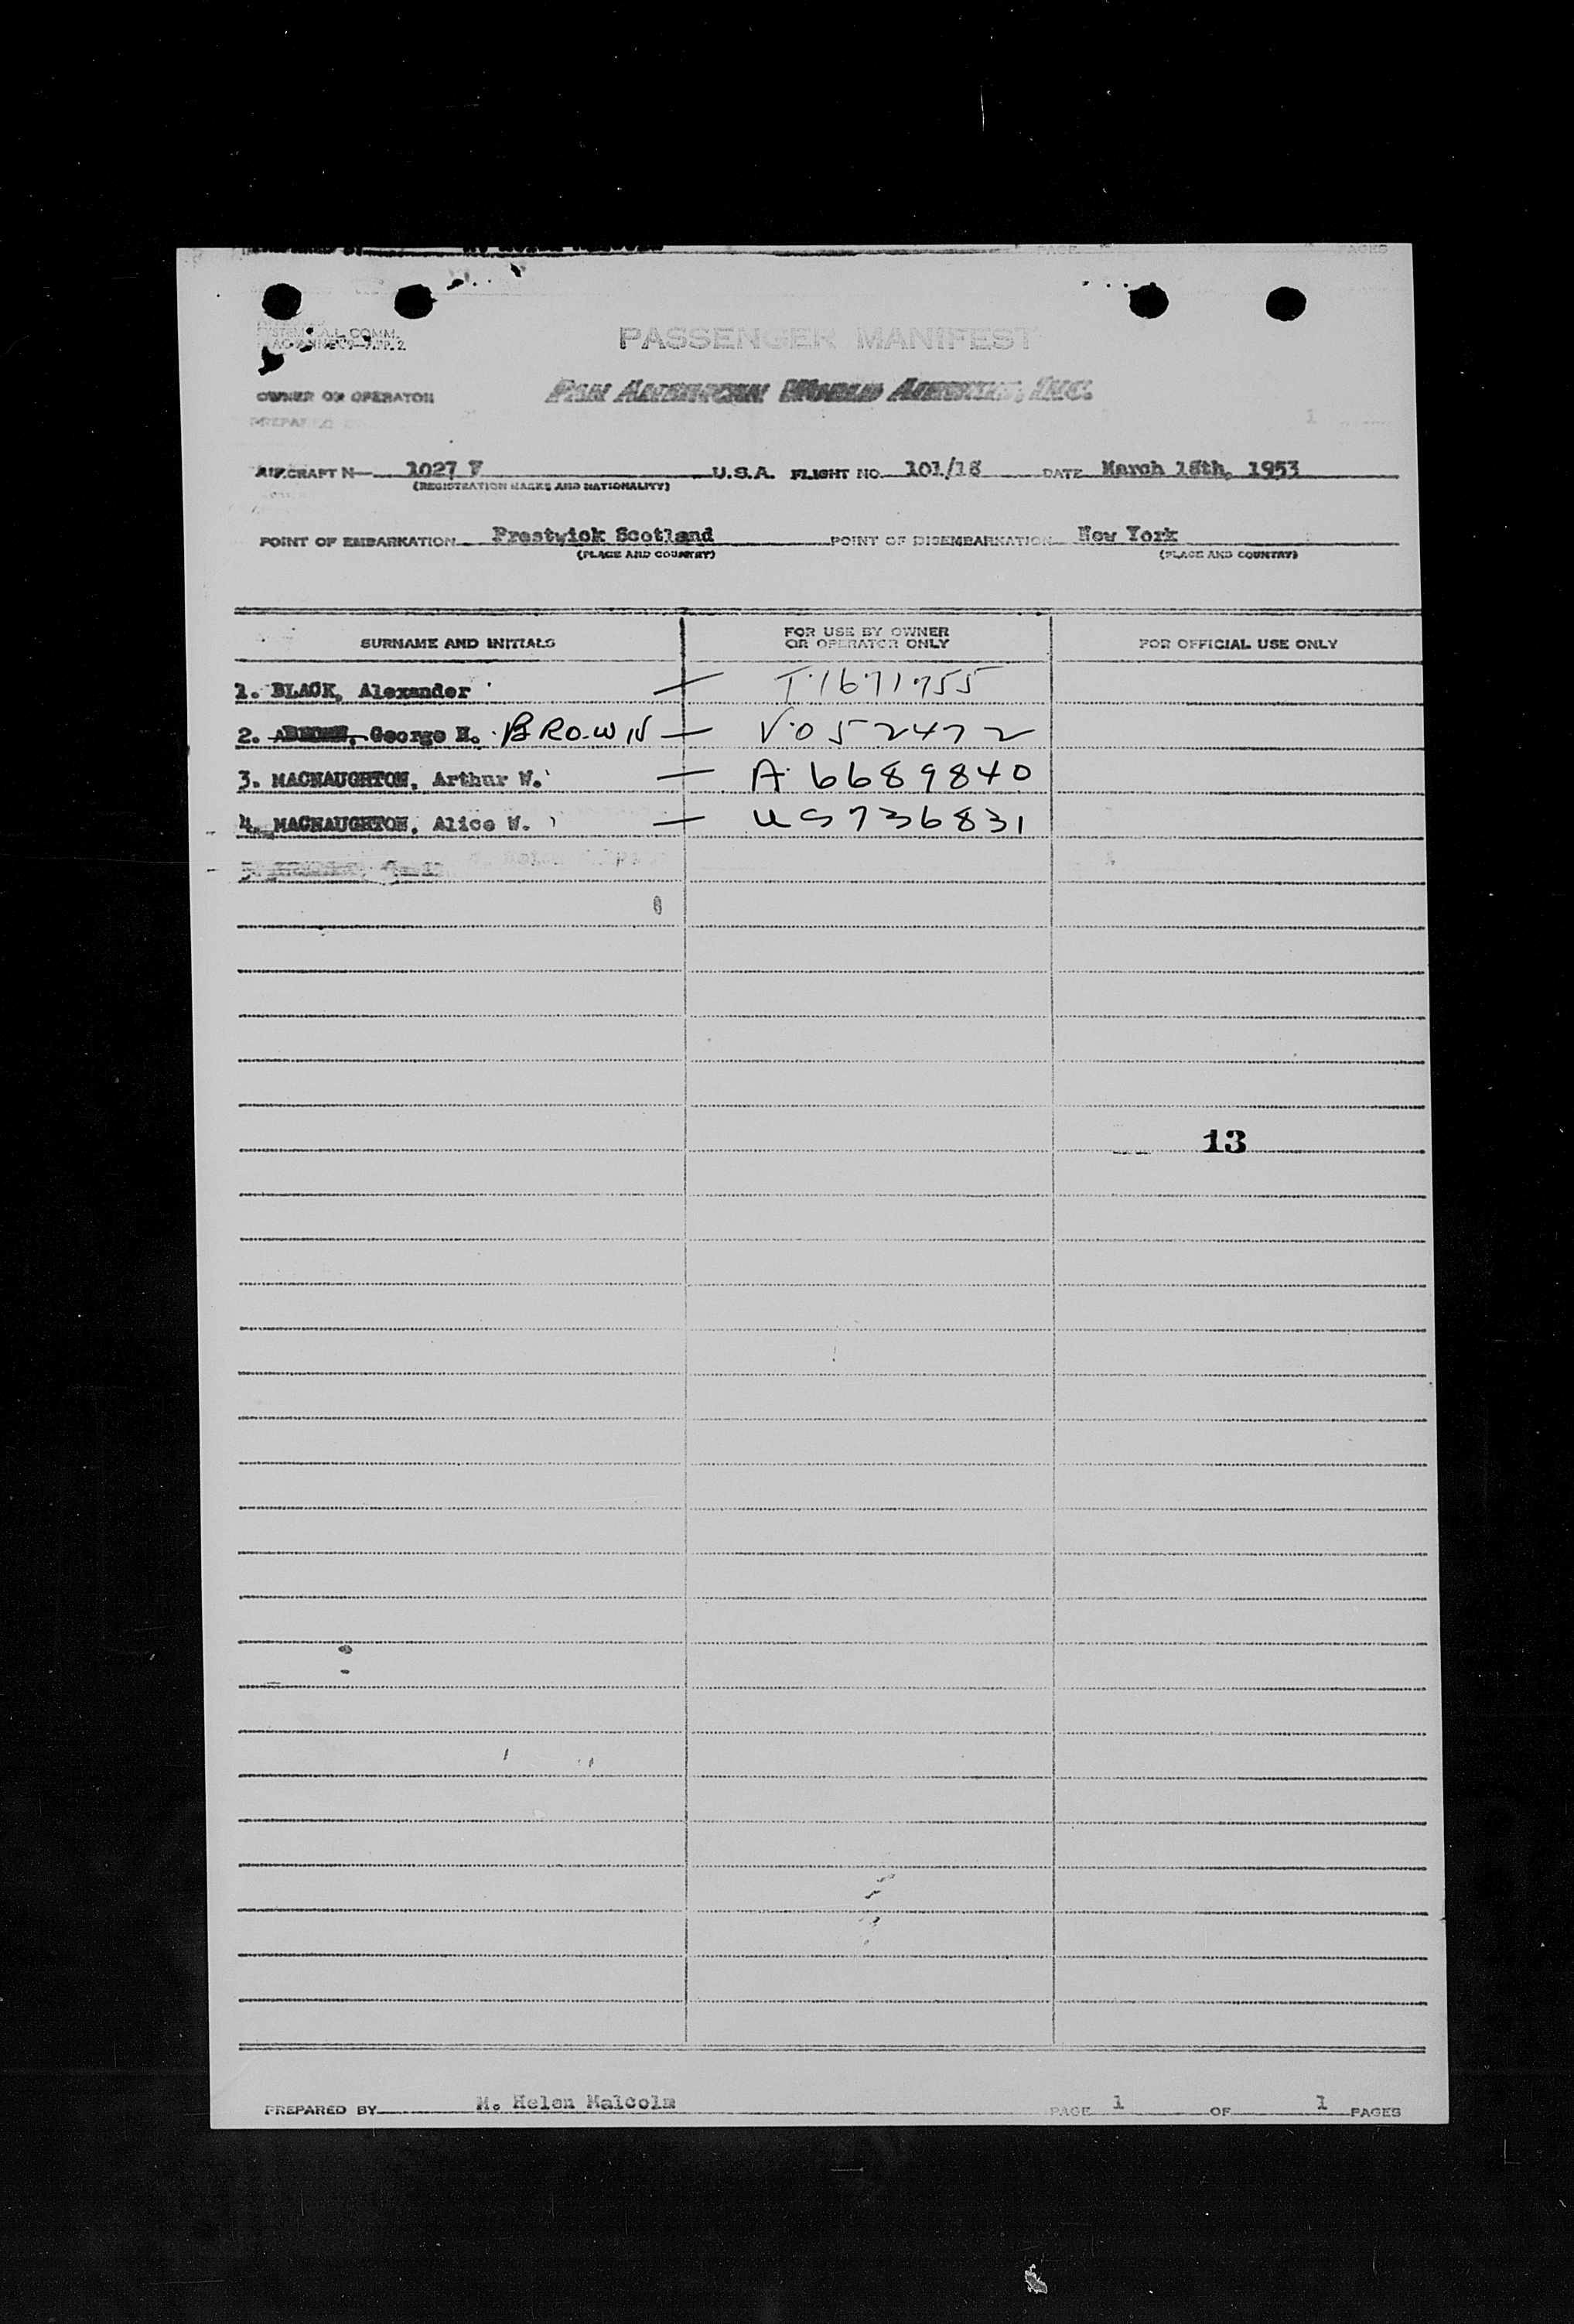 PASSENGER MANIFEST
OWNER OR OPERATOR PAN AMERICAN WORLD AIRWAYS, INC.
AIRCRAFT N— 1027 V U.S.A. FLIGHT NO. 101/18 DATE March 18th, 1953
(REGISTRATION MARKS AND NATIONALITY)
POINT OF EMBARKATION Prestwick Scotland POINT OF DISEMBARKATION New York
(PLACE AND COUNTRY) (PLACE AND COUNTRY)
SURNAME AND INITIALS FOR USE BY OWNER OR OPERATOR ONLY FOR OFFICIAL USE ONLY
1. BLACK, Alexander — I 1671755
2. George H. BROWN — V 052472
3. MACNAUGHTON, Arthur W. — A 6689840
4. MACNAUGHTON, Alice W. — US736831
13
PREPARED BY M. Helen Malcolm PAGE 1 OF 1 PAGES